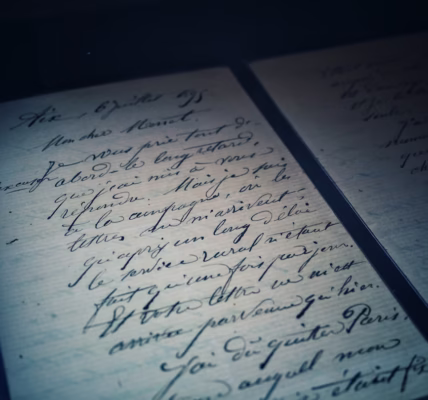 Aix, 6 juillet 95
Mon cher
Je vous prie tout d'-
excuser abord le long retard,
que j'ai mis à vous
répondre. Mais je suis
à la campagne, où les
lettres ne m'arrivent
qu'après un long délai
le service rural n'étant
fait qu'une fois par jour.
Et votre lettre ne m'est
arrivée parvenue qu'hier.
J'ai dû quitter Paris,
auquel mon
étaient